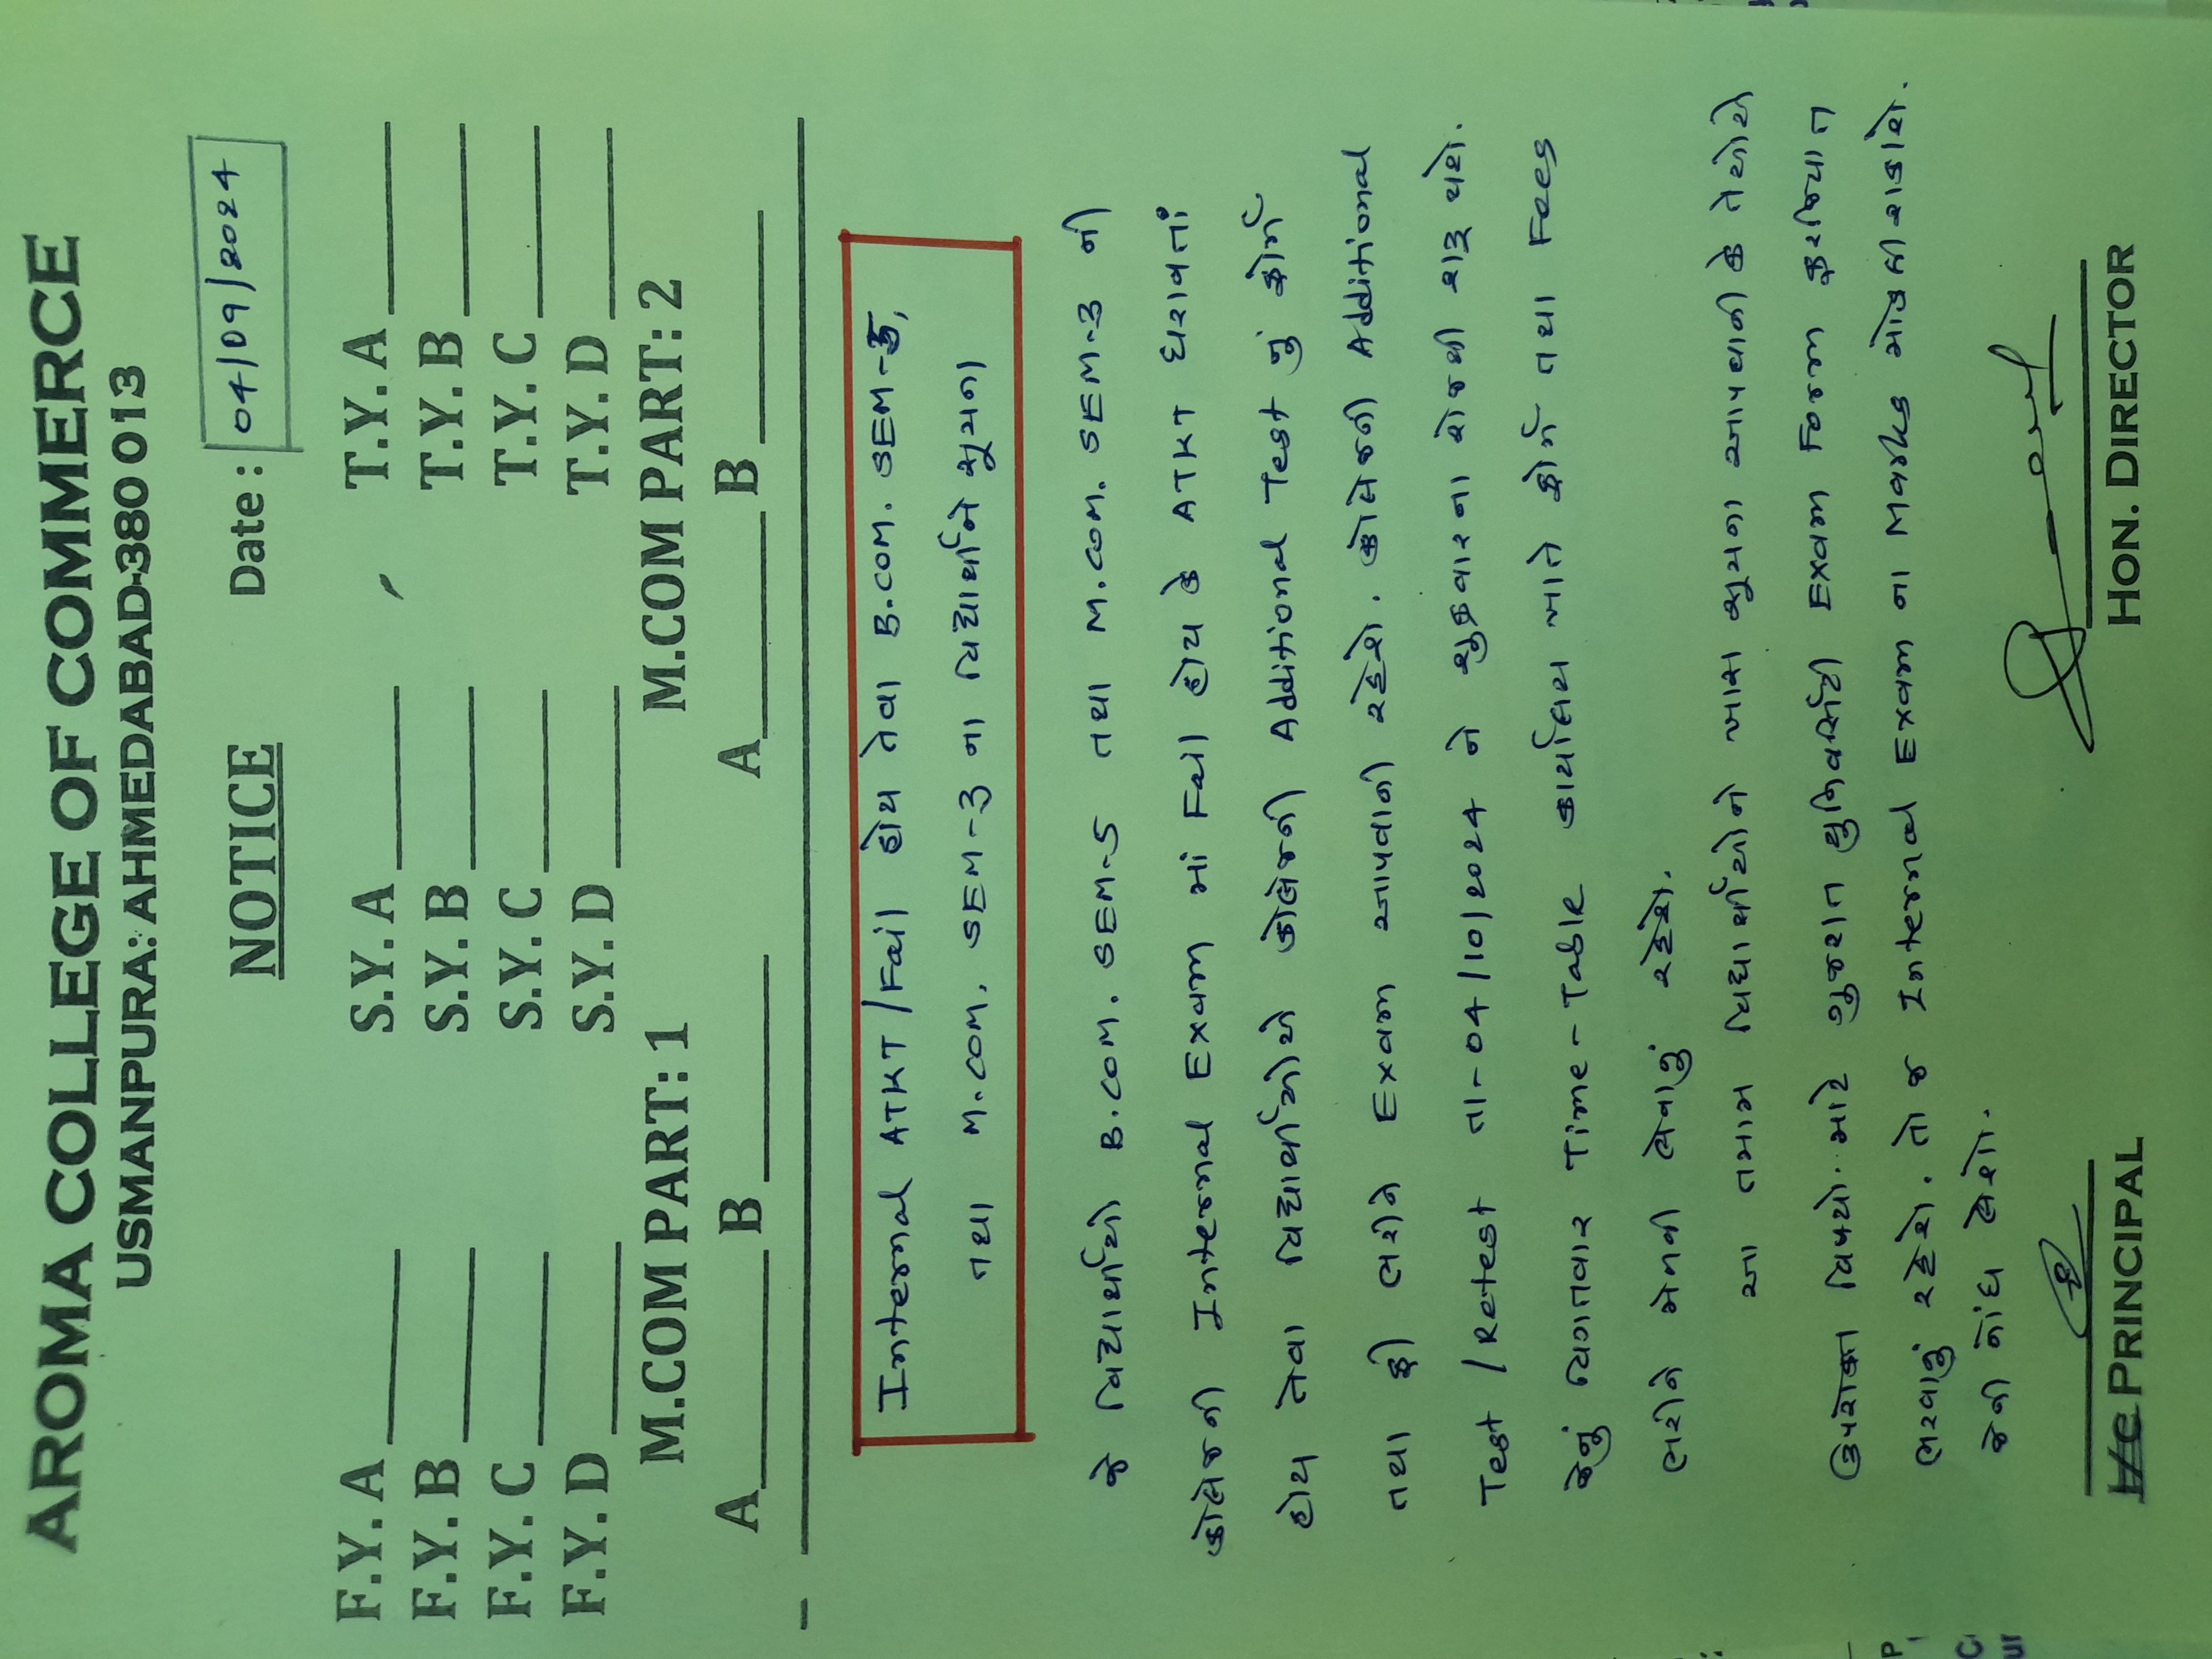 AROMA COLLEGE OF COMMERCE
USMANPURA: AHMEDABAD-380 013
NOTICE Date: 04/09/2024
F.Y. A S.Y. A T.Y. A
F.Y. B S.Y. B T.Y. B
F.Y. C S.Y. C T.Y. C
F.Y. D S.Y. D T.Y. D
M.COM PART: 1 M.COM PART: 2
A B A B
Internal ATKT/Fail હોય તેવા B.COM. SEM-5,
તથા M.COM. SEM-3 ના વિદ્યાર્થીને સૂચના
જે વિદ્યાર્થીઓ B.COM. SEM-5 તથા M.COM. SEM-3 ની
કોલેજની Internal Exam માં Fail હોય કે ATKT ધરાવતાં
હોય તેવા વિદ્યાર્થીઓએ કોલેજની Additional Test નું ફોર્મ
તથા ફી ભરીને Exam આપવાની રહેશે. કોલેજની Additional
Test/Retest તા-04/10/2024 ને શુક્રવારના રોજથી શરૂ થશે.
જેનું વિગતવાર Time-Table કાર્યાલય ખાતે ફોર્મ તથા Fees
ભરીને મેળવી લેવાનું રહેશે.
આ તમામ વિદ્યાર્થીઓને ખાસ સૂચના આપવાની કે તેઓએ
ઉપરોક્ત વિષયો માટે ગુજરાત યુનિવર્સિટી Exam Form ફરજિયાત
ભરવાનું રહેશે. તો જ Internal Exam ના Marks મોકલી શકાશે.
જેની નોંધ લેશો.
I/C PRINCIPAL HON. DIRECTOR